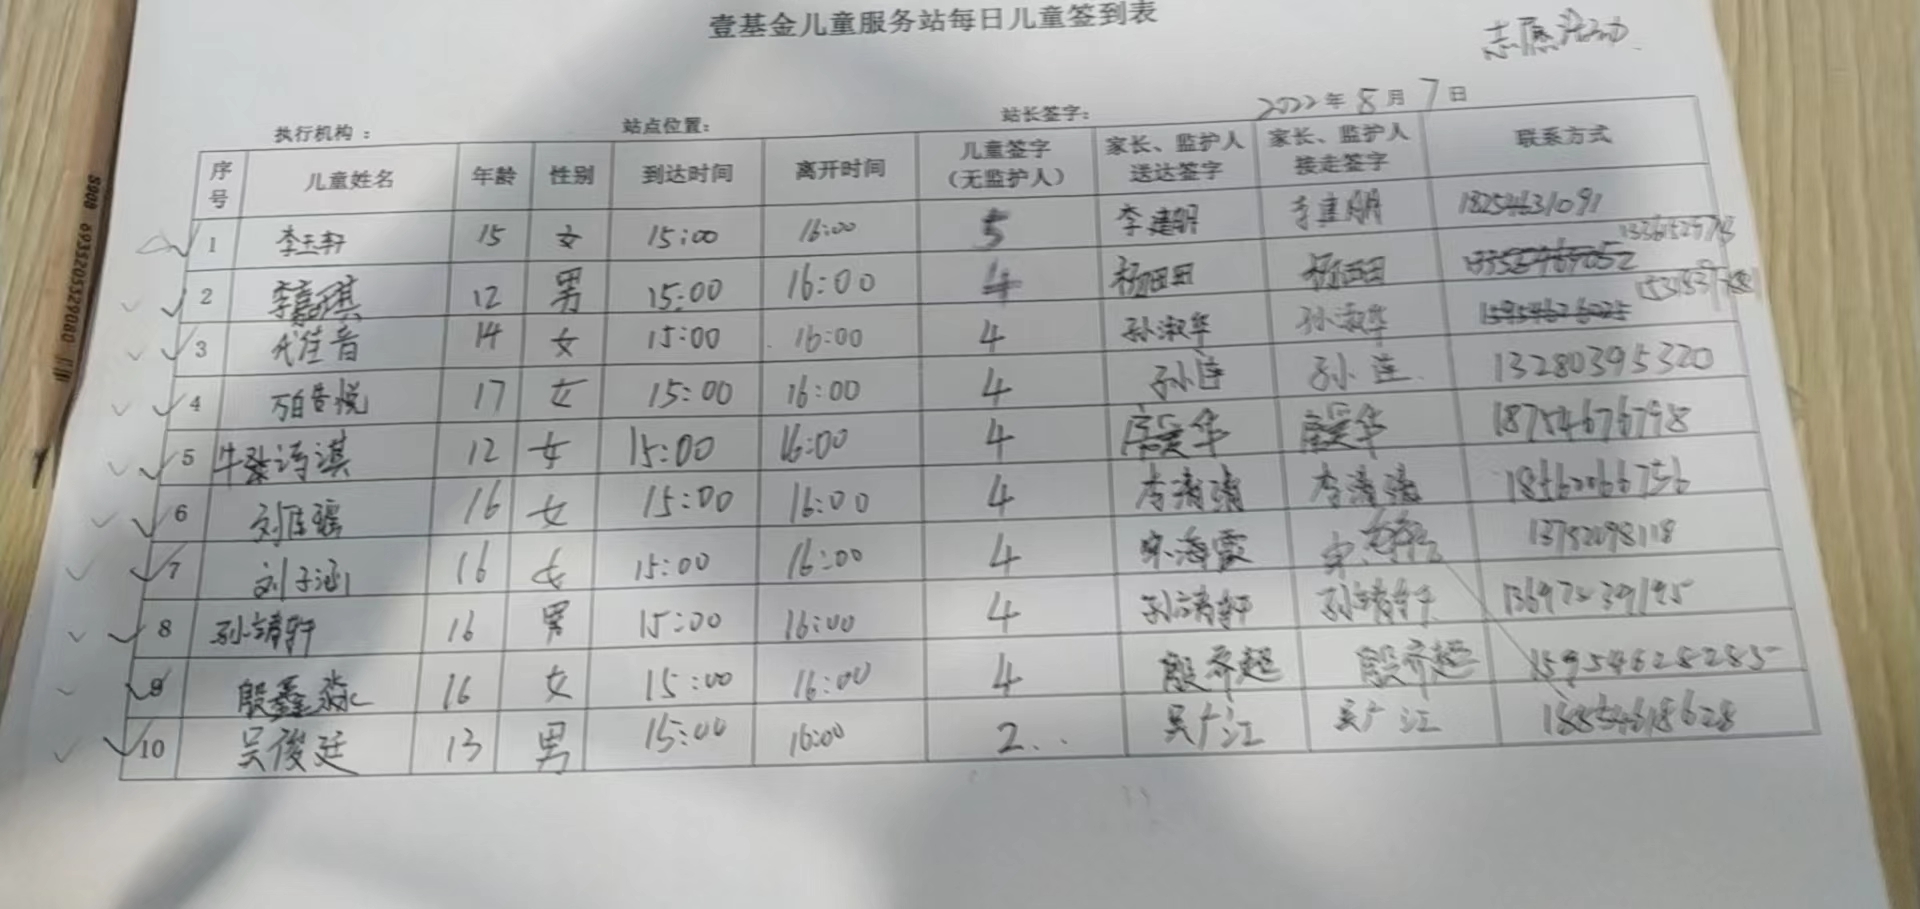 壹基金儿童服务站每日儿童签到表
志愿活动
执行机构： 站点位置： 站长签字： 2022年8月7日
序号 儿童姓名 年龄 性别 到达时间 离开时间 儿童签字（无监护人） 家长、监护人送达签字 家长、监护人接走签字 联系方式
1 李玉轩 15 女 15:00 16:00 5 李建明 李建明 18254631091
2 李嘉琪 12 男 15:00 16:00 4 杨田田 杨田田
3 代佳音 14 女 15:00 16:00 4 孙淑华 孙淑华
4 17 女 15:00 16:00 4 孙莲 孙莲 13280395320
5 牛张诗淇 12 女 15:00 16:00 4 18754676798
6 刘佳瑶 16 女 15:00 16:00 4 李清清 李清清
7 刘子涵 16 女 15:00 16:00 4 宋海霞
8 孙靖轩 16 男 15:00 16:00 4 孙靖轩 孙靖轩
9 殷鑫淼 16 女 15:00 16:00 4 殷乔超 殷乔超 15954628285
10 吴俊廷 13 男 15:00 16:00 2 吴广江 吴广江